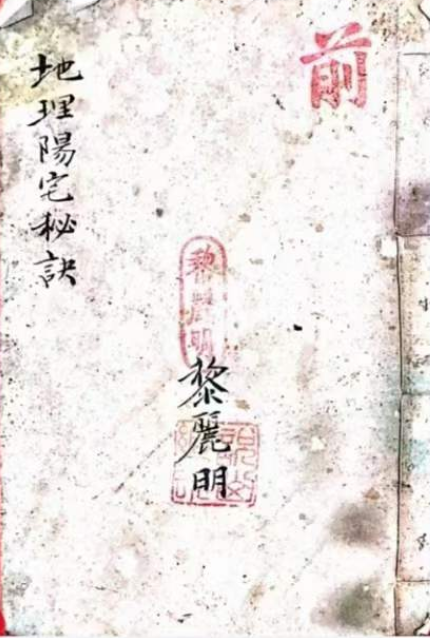 前
黎麗明
黎麗明
地理陽宅秘訣